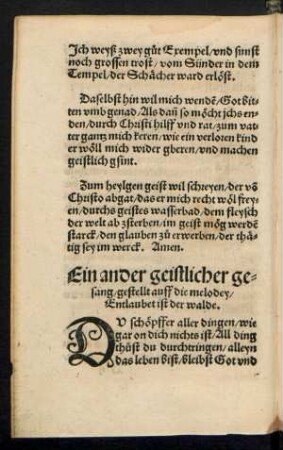 Ich weyß zwey gůt Exempel / vnd sunst
noch grossen trost / vom Sünder in dem
Tempel / der Schächer ward erlöst.
Daselbst hin wil mich wendē / Got bit-
ten vmb genad / Als dañ so möcht ichs en-
den / durch Christi hilff vnd rat / zum vat-
ter gantz mich keren / wie ein verloren kind
er wöll mich wider gberen / vnd machen
geistlich gsint.
Zum heylgen geist wil schreyen / der vō
Christo abgat / das er mich recht wöl frey-
en / durchs geistes wasserbad / dem fleysch
der welt ab zsterben / im geist mög werdē
starck / den glauben zů erwerben / der thä-
tig sey im werck. Amen.
Ein ander geistlicher ge-
sang / gestellt auff die melodey /
Entlaubet ist der walde.
DV schöpffer aller dingen / wie
gar on dich nichts ist / All ding
thůst du durchtringen / alleyn
das leben bist / bleibst Got vnd